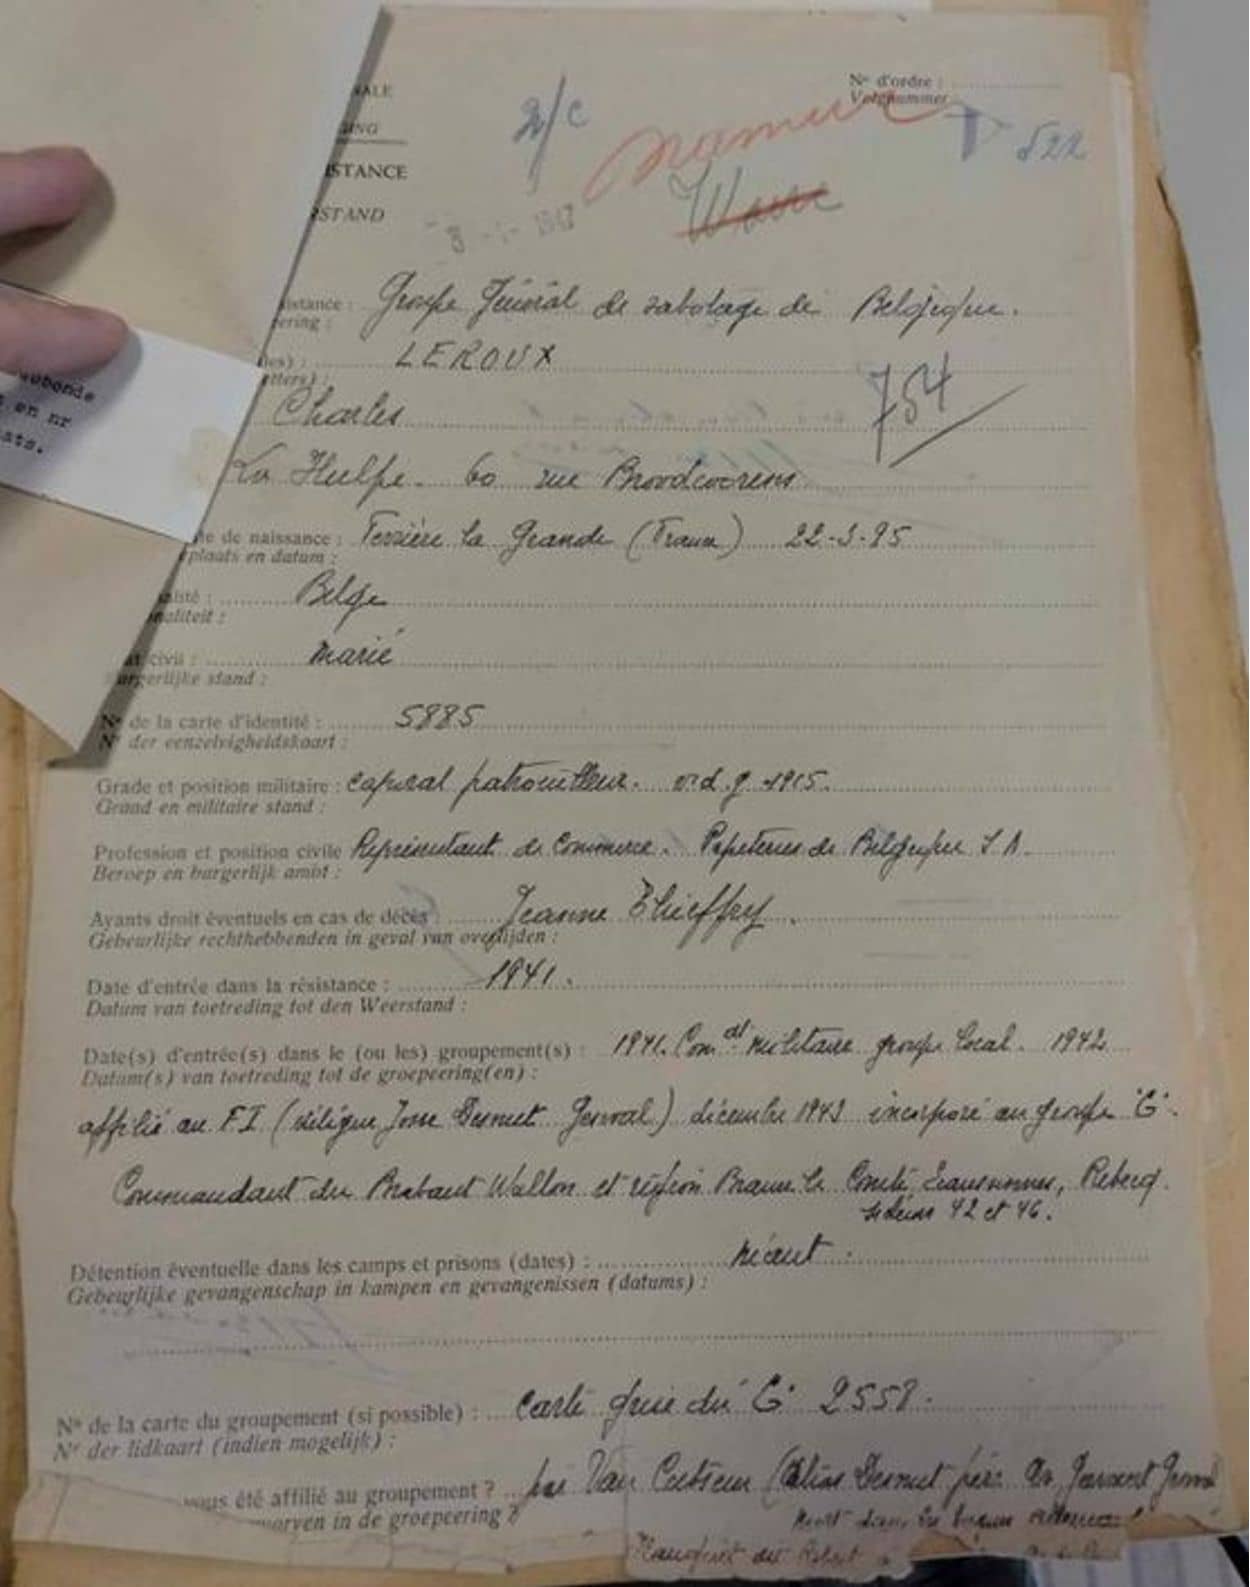 ALE
N° d'ordre :
Volgnummer
2/c
Namur
522
ISTANCE
STAND
Wavre
istance : Groupe Général de sabotage de Belgique.
ering :
es) : LEROUX
etters) :
754
Charles
La Hulpe. 60 rue Broodcoorens
e de naissance : Ferrière la Grande (France) 22-3-95
plaats en datum :
alité : Belge
naliteit :
civil : marié
urgerlijke stand :
N° de la carte d'identité : 5885
N° der eenzelvigheidskaart :
Grade et position militaire : caporal patrouilleur. v.d.g 1915.
Graad en militaire stand :
Profession et position civile Représentant de commerce. Papeteries de Belgique S A.
Beroep en burgerlijk ambt :
Ayants droit éventuels en cas de décès : Jeanne Thieffry.
Gebeurlijke rechthebbenden in geval van overlijden :
Date d'entrée dans la résistance : 1941.
Datum van toetreding tot den Weerstand :
Date(s) d'entrée(s) dans le (ou les) groupement(s) : 1941. Comdt militaire groupe local. 1942
Datum(s) van toetreding tot de groepeering(en) :
affilié au FI (délégué Desmet Genval) décembre 1943 incorporé au groupe "G".
Commandant du Brabant Wallon et région Braine le Comte, Ecaussinnes, Rebecq.
secteurs 42 et 46.
Détention éventuelle dans les camps et prisons (dates) : néant.
Gebeurlijke gevangenschap in kampen en gevangenissen (datums) :
N° de la carte du groupement (si possible) : carte grise du G. 2558.
N° der lidkaart (indien mogelijk) :
vous été affilié au groupement ? par Van Cutsem (alias Desmet père
worven in de groepeering ?
en nr
ats.